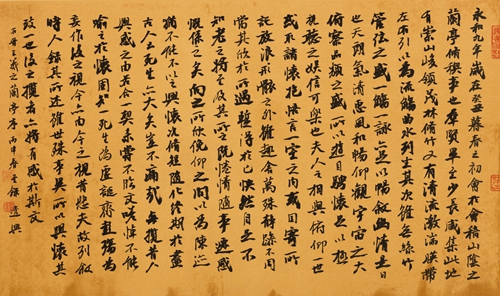 永和九年歲在癸丑暮春之初會於會稽山陰之
蘭亭脩稧事也群賢畢至少長咸集此地
有崇山峻領茂林脩竹又有清流激湍映帶
左右引以為流觴曲水列坐其次雖無絲竹
管弦之盛一觴一詠亦足以暢敘幽情是日
也天朗氣清惠風和暢仰觀宇宙之大
俯察品類之盛所以遊目騁懷足以極
視聽之娛信可樂也夫人之相與俯仰一世
或取諸懷抱悟言一室之內或因寄所
託放浪形骸之外雖趣舍萬殊靜躁不同
當其欣於所遇暫得於己快然自足不
知老之將至及其所之既惓情隨事遷感
慨係之矣向之所欣俛仰之間以為陳迹
猶不能不以之興懷況脩短隨化終期於盡
古人云死生亦大矣豈不痛哉每攬昔人
興感之由若合一契未嘗不臨文嗟悼不能
喻之於懷固知一死生為虛誕齊彭殤為
妄作後之視今亦由今之視昔悲夫故列敘
時人錄其所述雖世殊事異所以興懷其
致一也後之攬者亦將有感於斯文
右晉王羲之蘭亭序丙申春